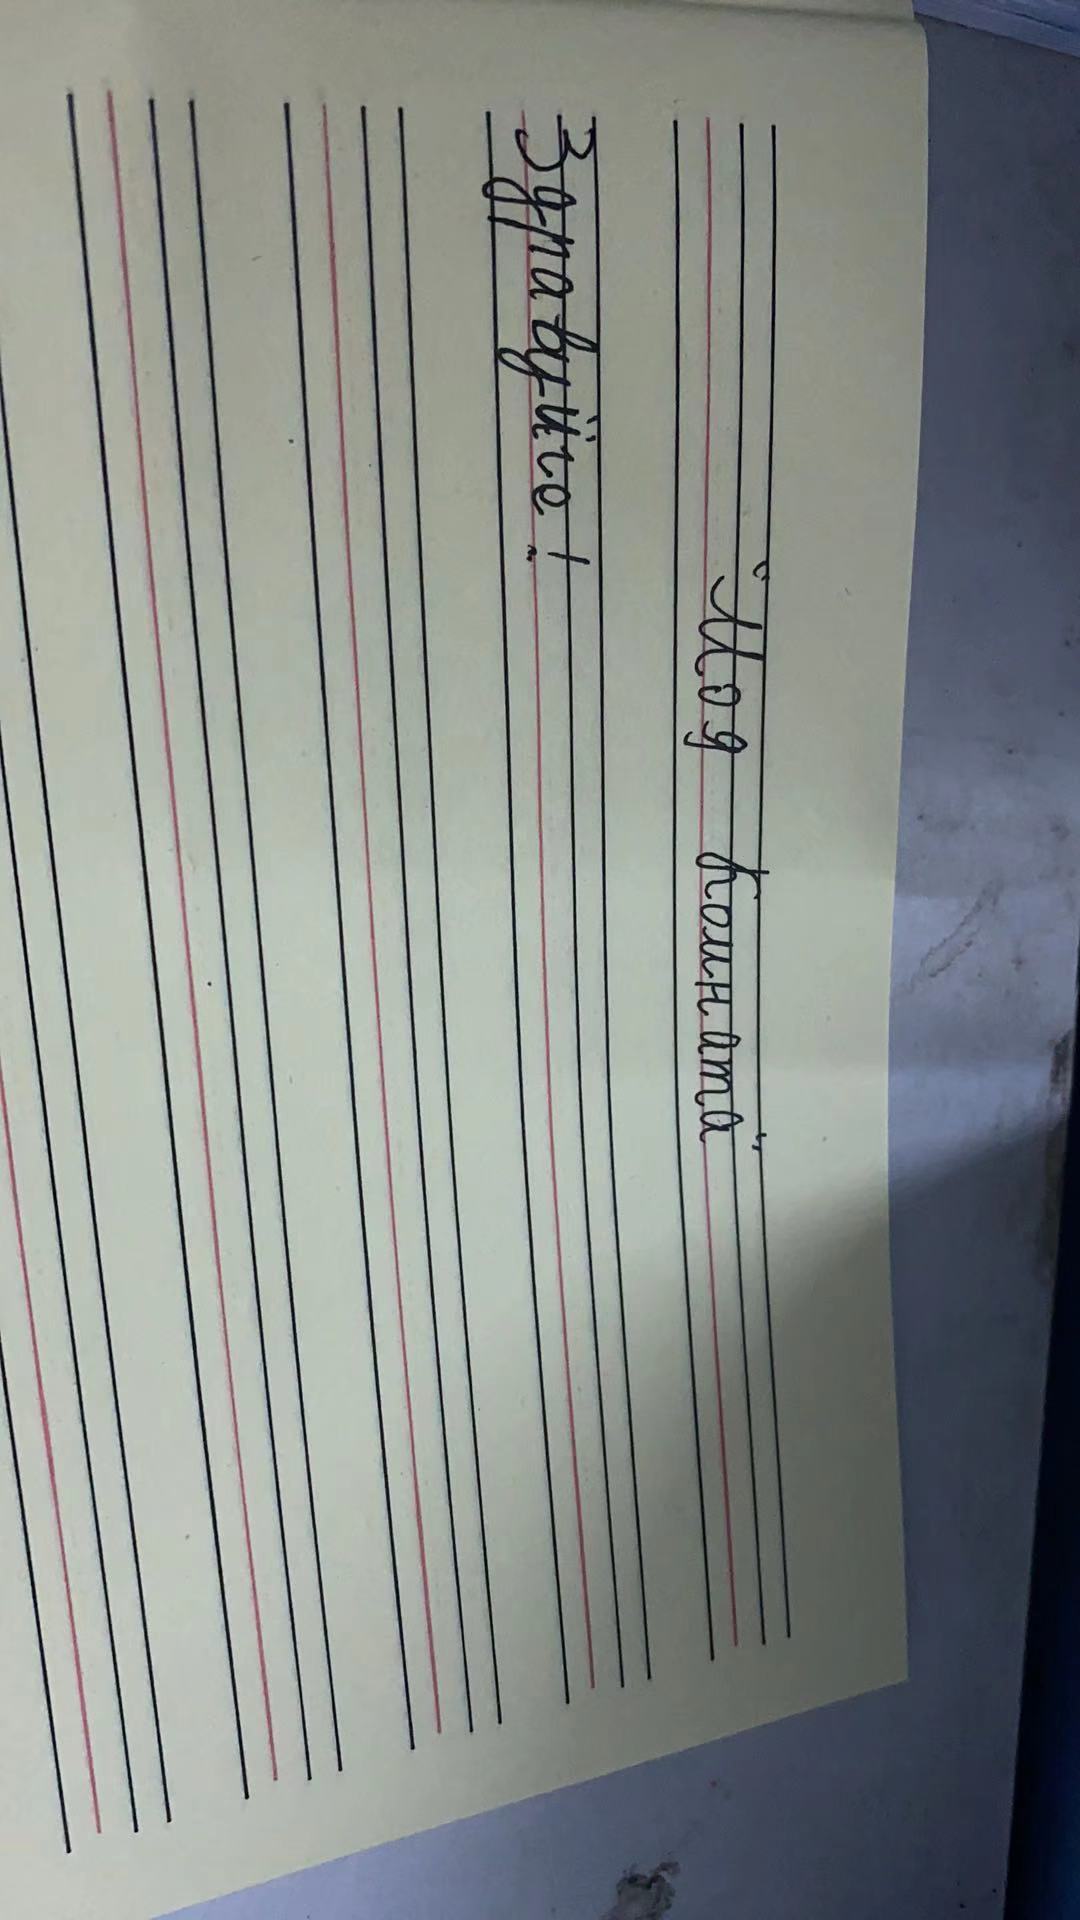 "Моя комната"
Здравуйте!